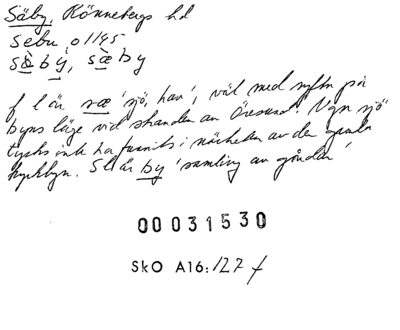 Säby, Rönnebergs hd
sebu, o 1145
sèby, sæ̀by
f l är sæ 'sjö, hav', väl med syftn på
byns läge vid stranden av Öresund. Ngn sjö
tycks inte ha funnits i närheten av den gamla
kyrkbyn. Sl är by 'samling av gårdar'
00031530
SkO A16:127 f